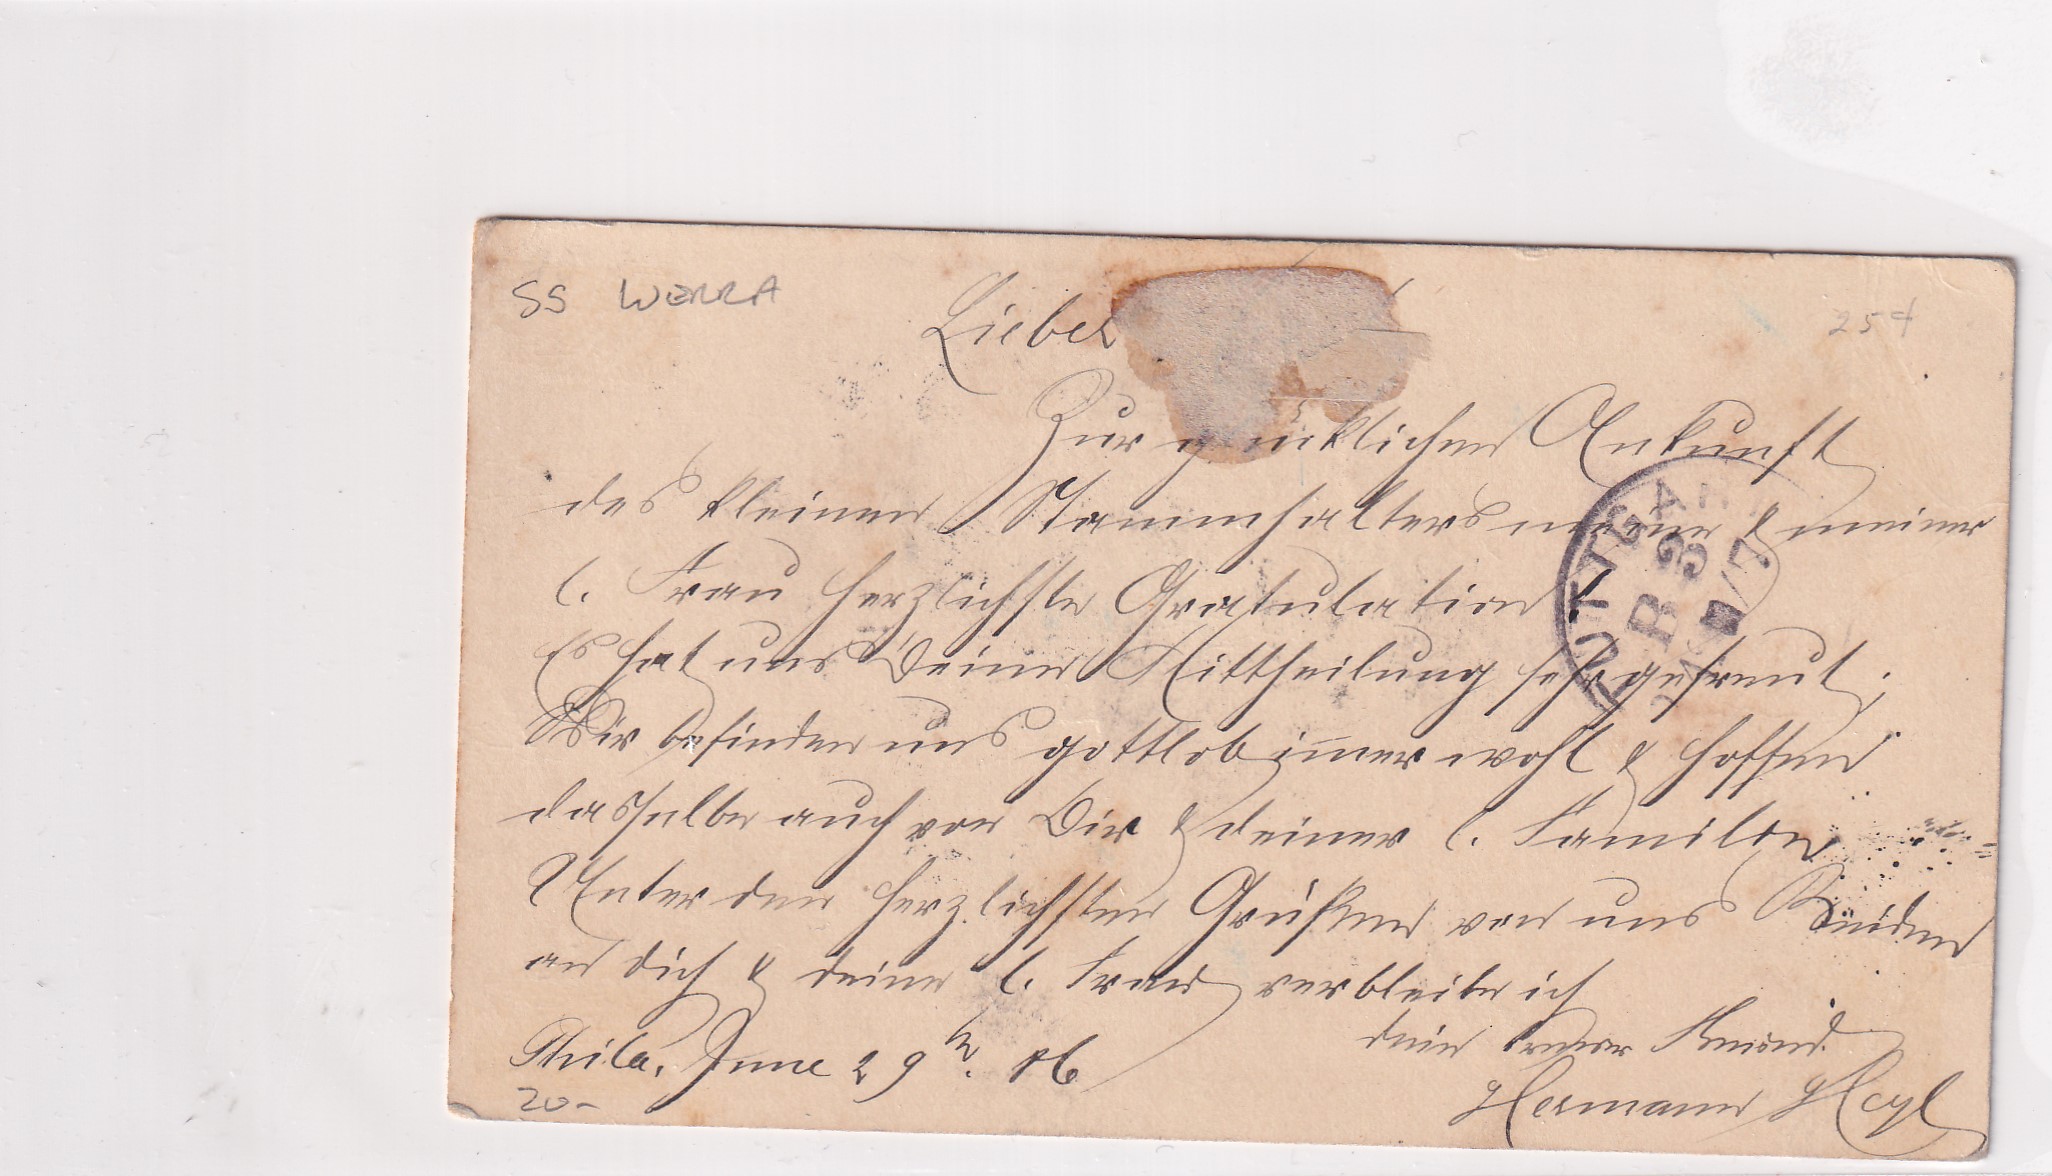 SS WERRA
25
Lieber
Zur glücklichen Ankunft
des kleinen Stammhalters meine & meiner
l. Frau herzlichste Gratulation
Es hat uns Deine Mittheilung sehr gefreut;
Wir befinden uns gottlob imer wohl & hoffen
dasselbe auch von Dir & deiner l. Familie
Unter den herzlichsten Grüßen von uns Beiden
an dich & deine l. Frau verbleibe ich
dein treuer Freund
Phila. June 29th. 86
Hermann Heyl
20-
STUTTGART
B 3
7